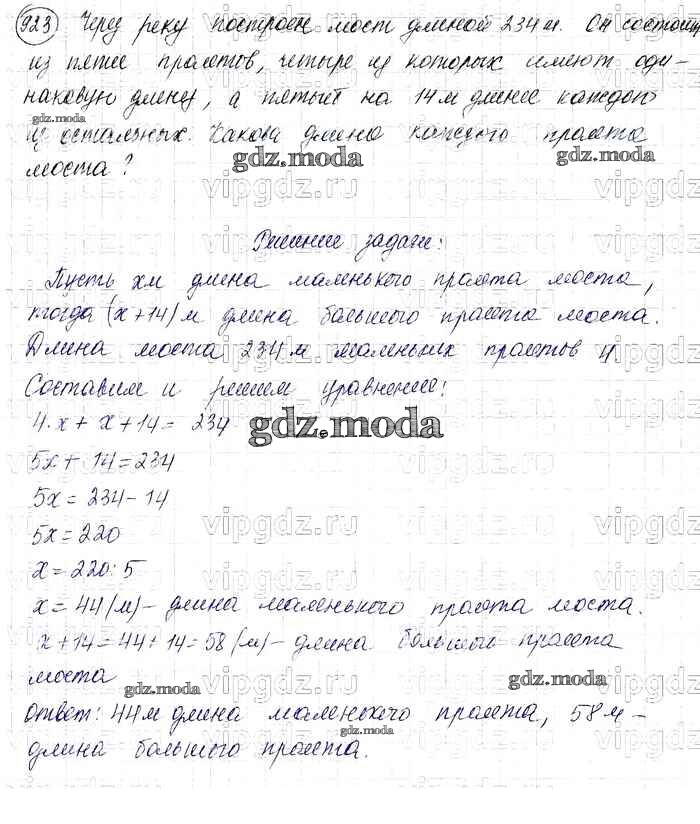 923 Через реку построен мост длиной 234 м. Он состоит
из пяти пролётов, четыре из которых имеют оди-
наковую длину, а пятый на 14 м длинее каждого
из остальных. Какова длина каждого пролёта
моста?
gdz.moda
gdz.moda
Решение задачи:
Пусть x м длина маленького пролёта моста,
тогда (x+14) м длина большого пролёта моста.
Длина моста 234 м маленьких пролётов 4.
Составим и решим уравнение:
4·x + x + 14 = 234
gdz.moda
5x + 14 = 234
5x = 234 - 14
5x = 220
x = 220 : 5
x = 44 (м) - длина маленького пролёта моста.
x + 14 = 44 + 14 = 58 (м) - длина большого пролёта
моста
gdz.moda
gdz.moda
Ответ: 44 м длина маленького пролёта, 58 м -
длина большого пролёта.
gdz.moda
vipgdz.ru